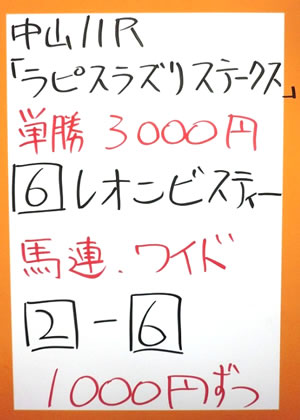 中山11R
「ラピスラズリステークス」
単勝 3000円
6 レオンビスティー
馬連、ワイド
2-6
1000円ずつ